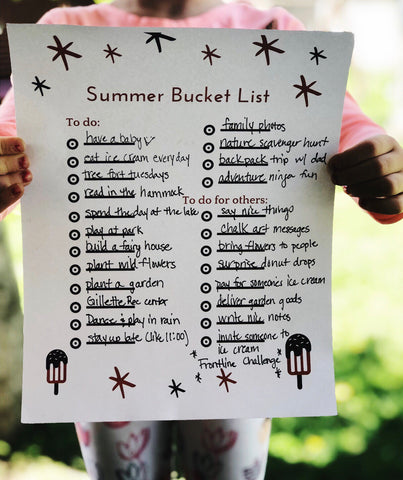 Summer Bucket List
To do:
have a baby ✓
eat ice cream everyday
tree fort tuesdays
read in the hammock
spend the day at the lake
play at park
build a fairy house
plant wild flowers
plant a garden
Gillette Rec center
Dance & play in rain
stay up late (like 11:00)
family photos
nature scavenger hunt
backpack trip w/ dad
adventure ninja fun
To do for others:
say nice things
chalk art messages
bring flowers to people
surprise donut drops
pay for someones ice cream
deliver garden goods
write nice notes
invite someone to
ice cream
* Frontline Challenge *